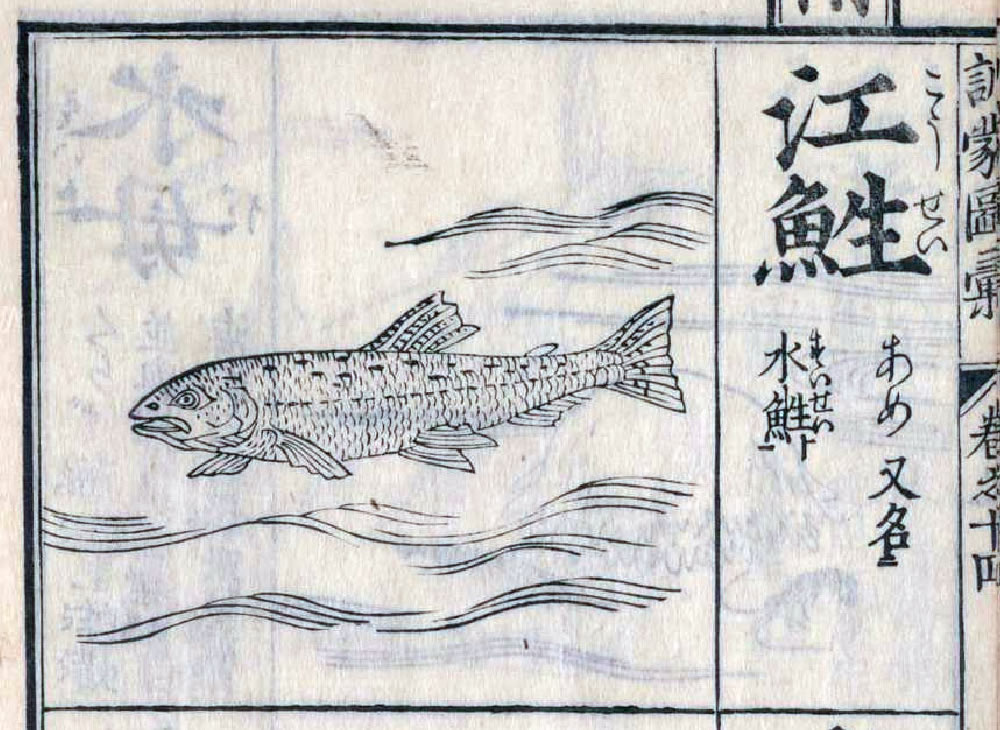 訓蒙圖彙
卷之十四
こうせい
江鮏
あめ 又名ニ
すいせい
水鮏ト